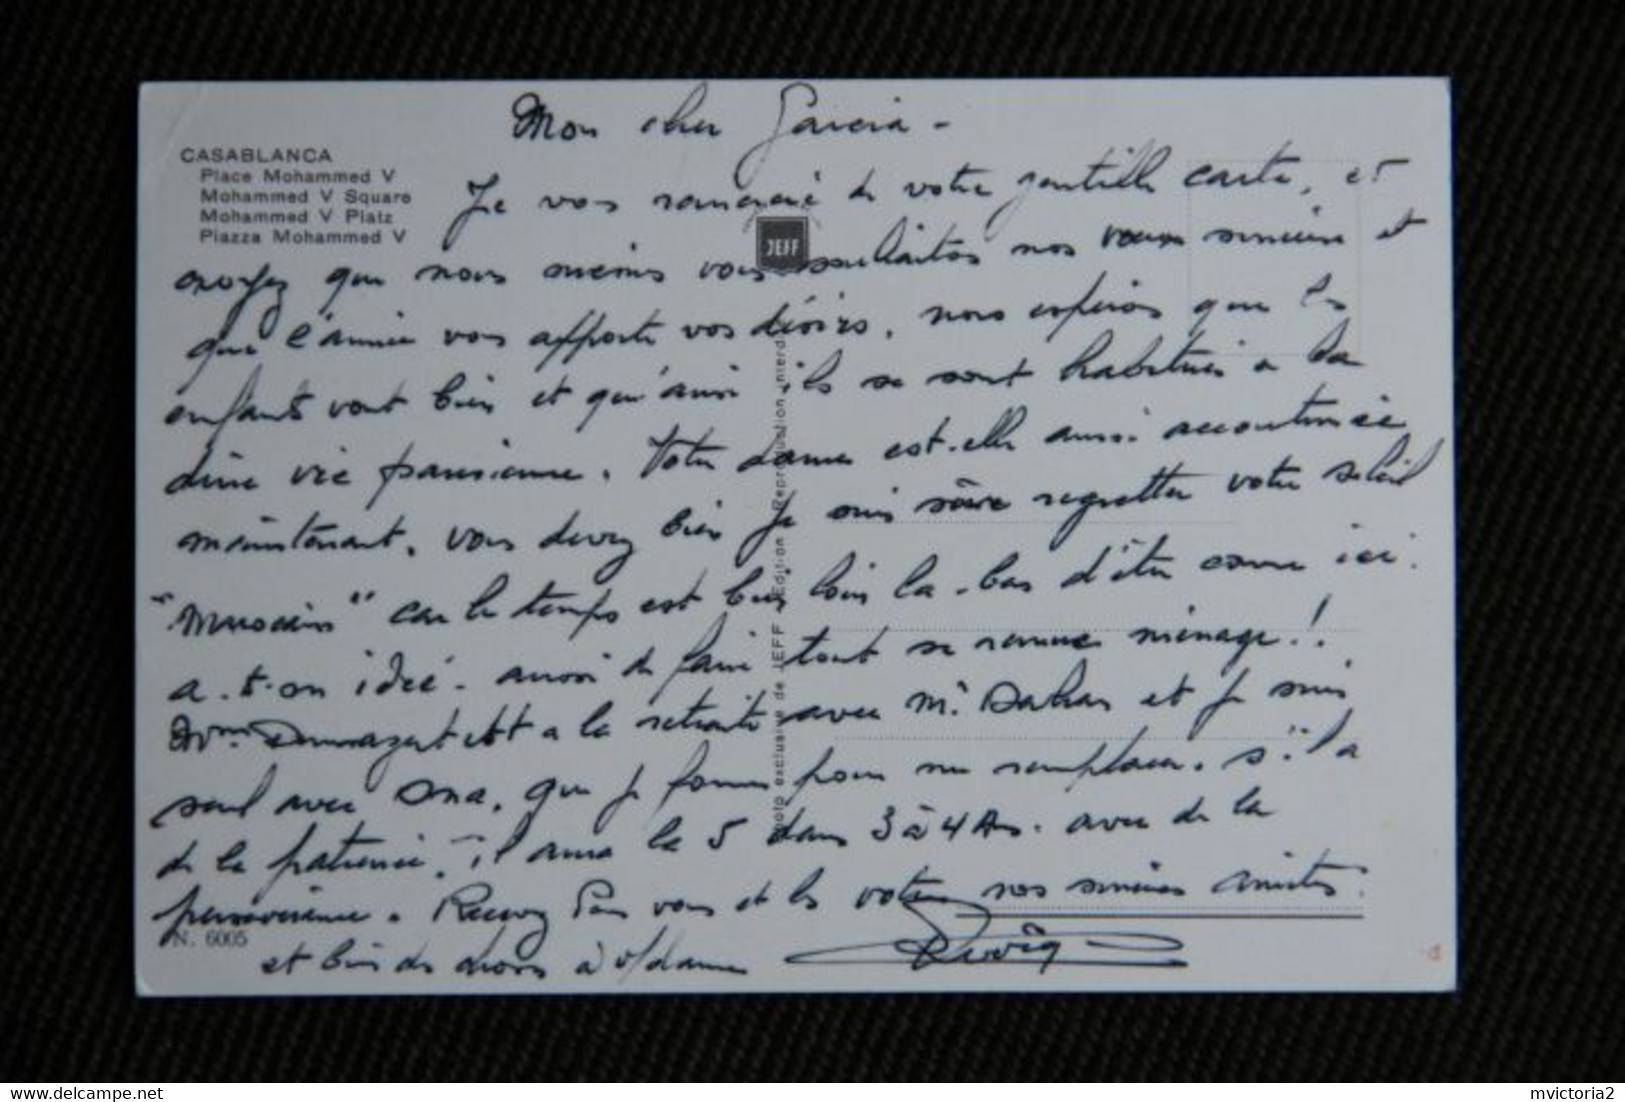 Mon cher Garcia -
CASABLANCA
Place Mohammed V
Mohammed V Square
Mohammed V Platz
Piazza Mohammed V
Je vous remercie de votre gentille carte, et
JEFF
croyez que nous mêmes vous souhaitons nos voeux sincères et
que l'année vous apporte vos désirs. nous espérons que les
enfants vont bien et qu'ainsi ils se sont habitués a la
dure vie parisienne. Votre dame est-elle aussi accoutumée
maintenant. vous devez bien je suis sûre regretter votre soleil
"Marocain" car le temps est bien loin la-bas d'être comme ici.
a-t-on idée. aussi de faire tout se ménage!!
a la retraite avec Mr Dahan et je suis
seul avec que je forme pour me remplacer. s'il a
de la patience, il aura le 5 dans 3 à 4 Ans. avec de la
persévérance. Recevez pour vous et les votres nos sincères amitiés.
N. 6005
et bien des choses à v/dame
Photo exclusive de JEFF Edition Reproduction interdite
mvictoria2